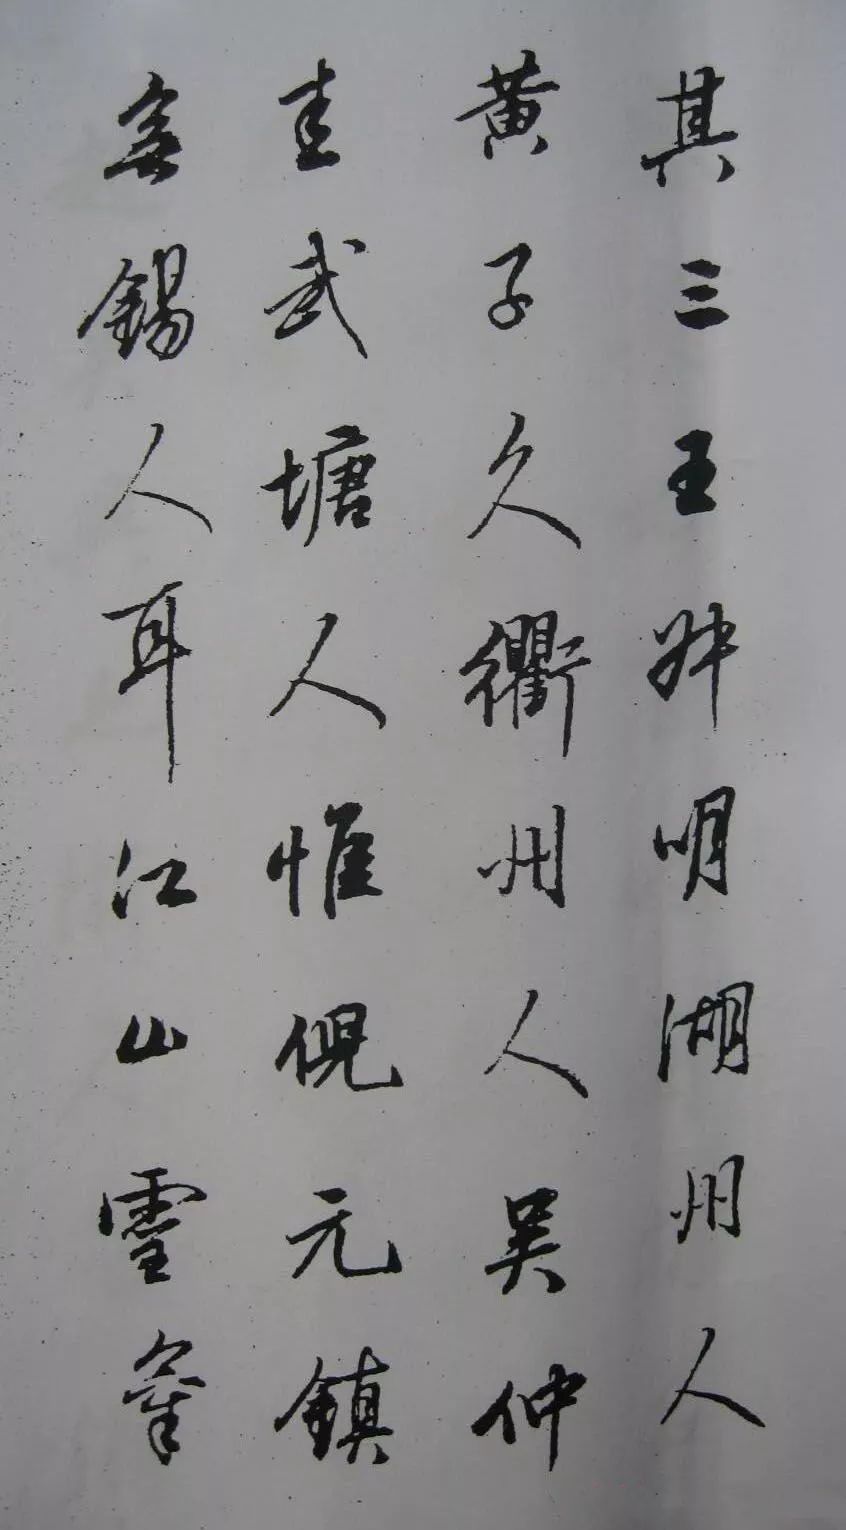 其三王叔明湖州人
黄子久衢州人吴仲
圭武塘人惟倪元鎮
無錫人耳江山靈氣